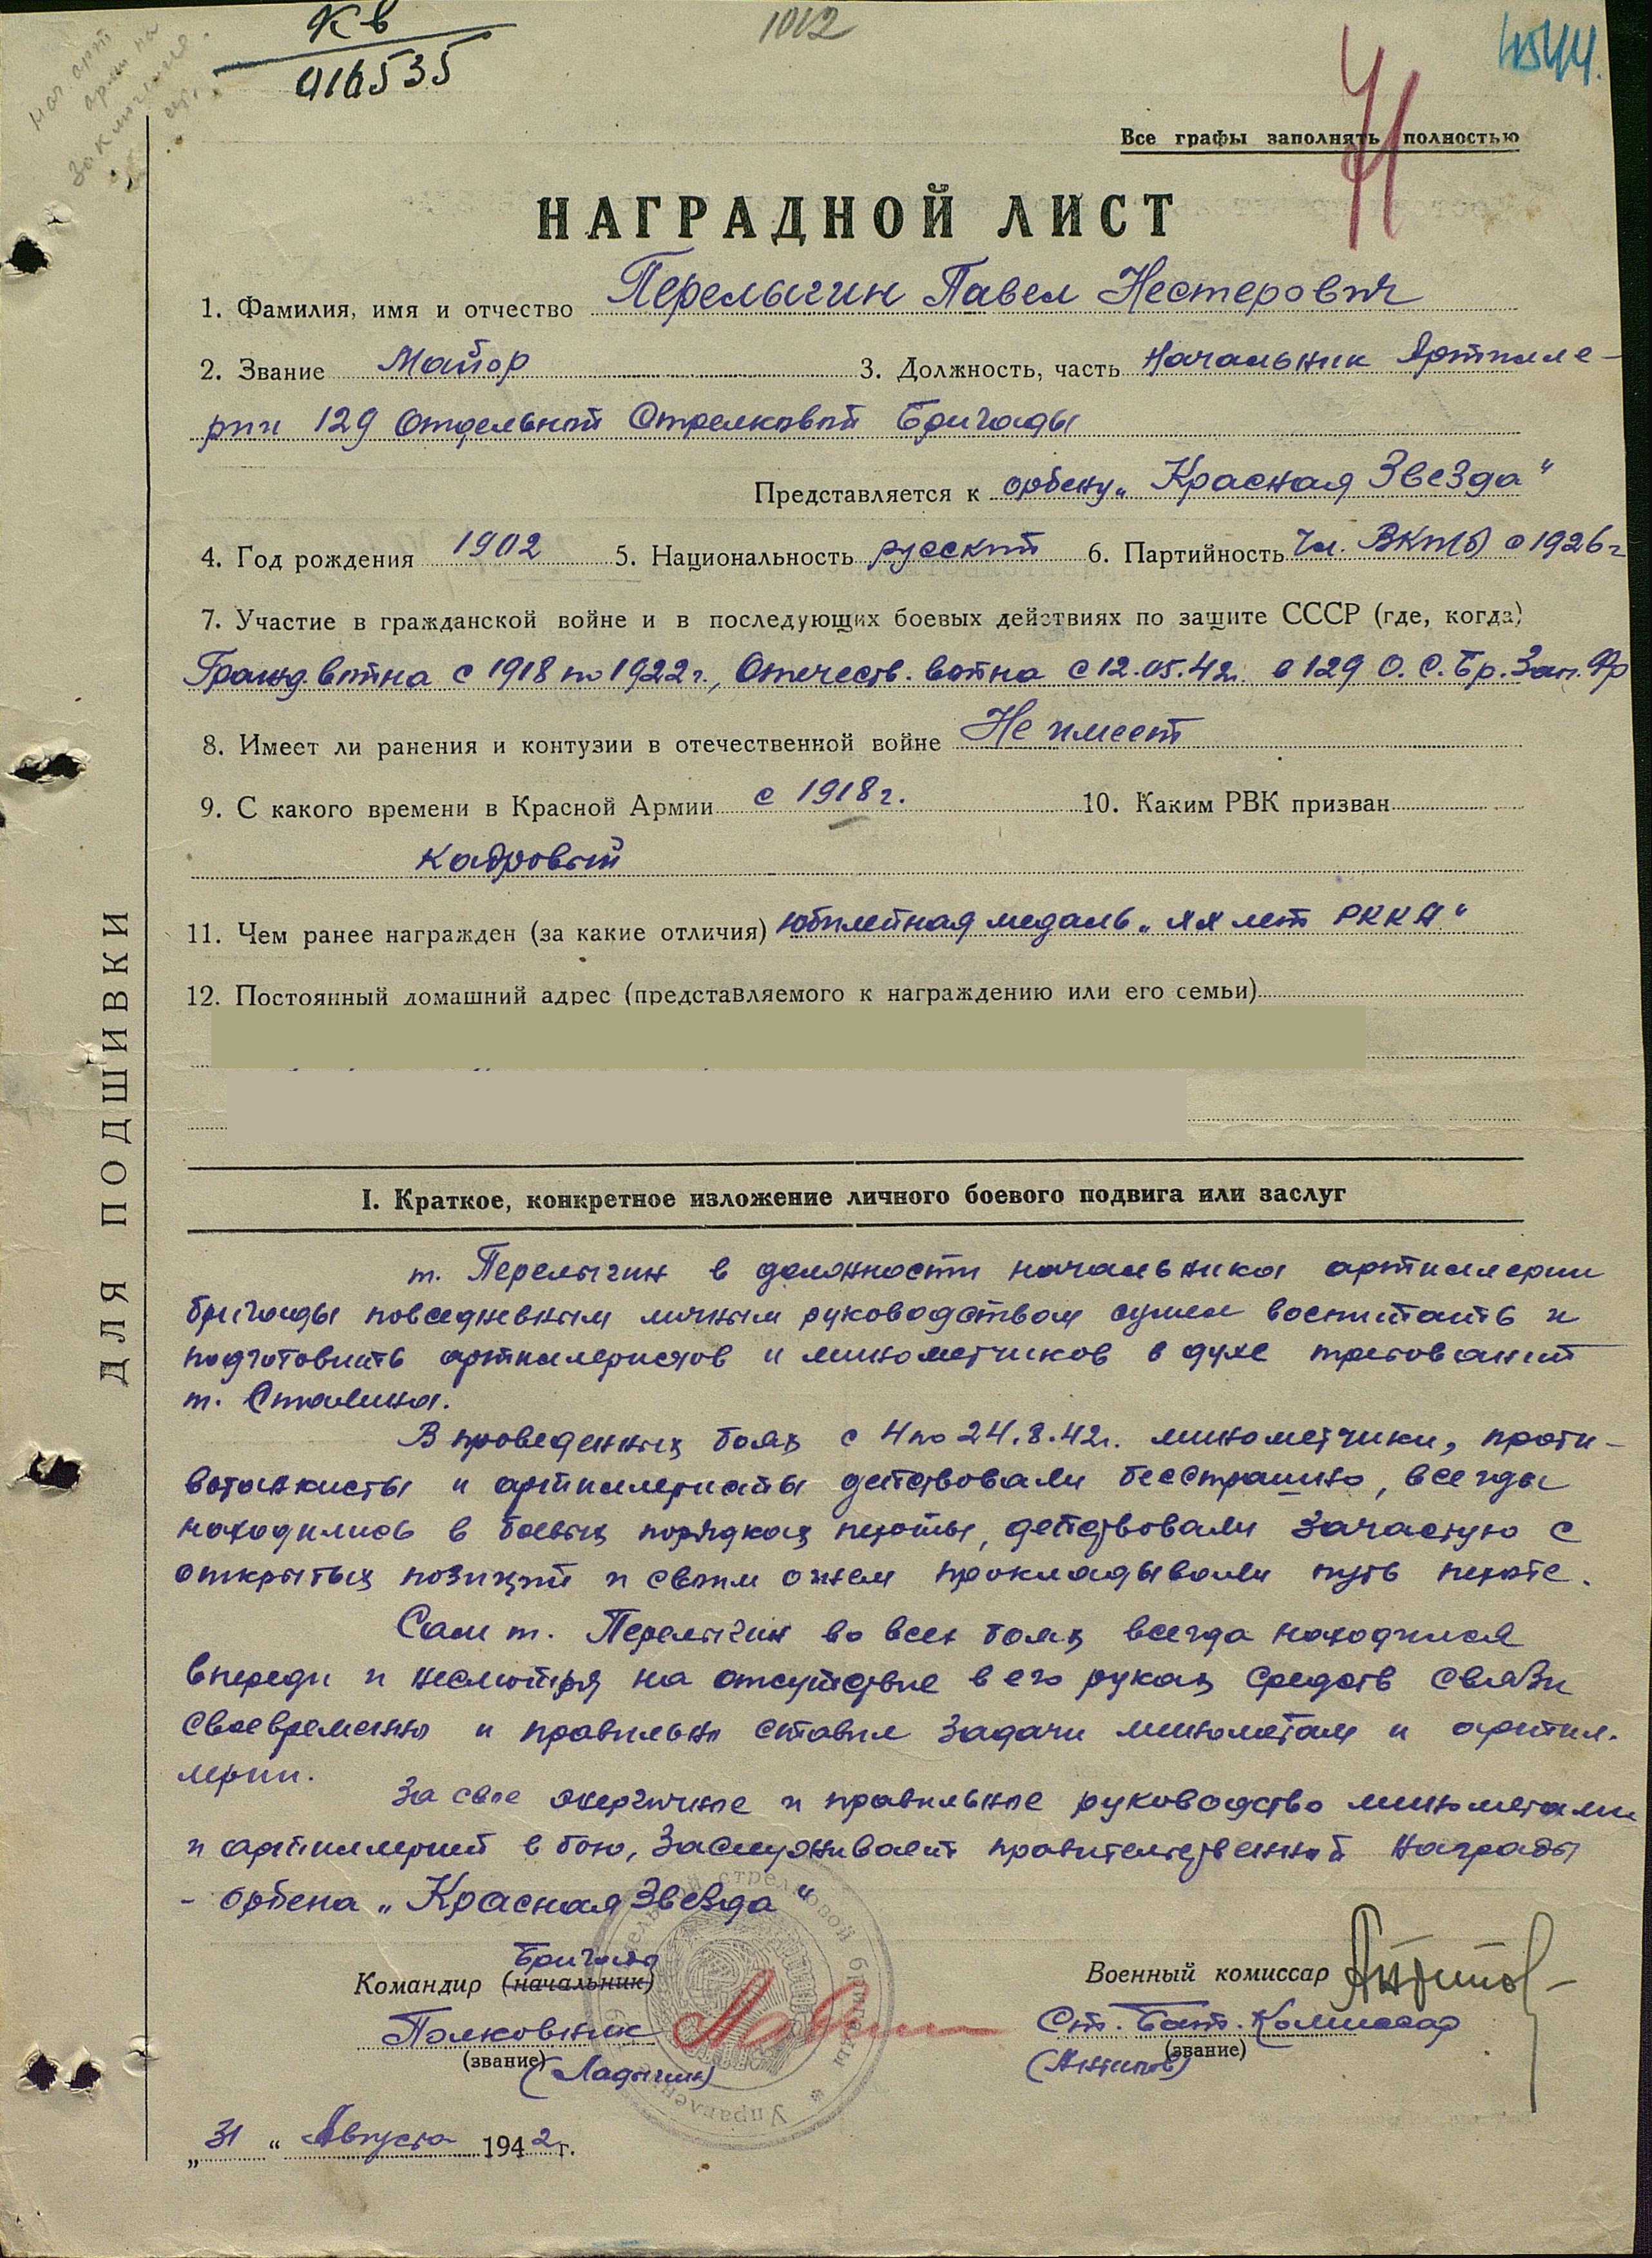 КВ
016535
1012
4544.
нач. арт
армии на
заключение.
Все графы заполнять полностью
НАГРАДНОЙ ЛИСТ
1. Фамилия, имя и отчество Перелыгин Павел Нестерович
2. Звание Майор 3. Должность, часть Начальник Артилле-
рии 129 Отдельной Стрелковой Бригады
Представляется к ордену „Красная Звезда“
4. Год рождения 1902 5. Национальность русский 6. Партийность Чл. ВКП(б) с 1926 г
7. Участие в гражданской войне и в последующих боевых действиях по защите СССР (где, когда)
Гражд. война с 1918 по 1922 г., Отечеств. война с 12.05.42 г. в 129 О. С. Бр. Зап. Фр
8. Имеет ли ранения и контузии в отечественной войне Не имеет
9. С какого времени в Красной Армии с 1918 г. 10. Каким РВК призван
Кадровый
11. Чем ранее награжден (за какие отличия) Юбилейная медаль „ХХ лет РККА“
12. Постоянный домашний адрес (представляемого к награждению или его семьи)
I. Краткое, конкретное изложение личного боевого подвига или заслуг
т. Перелыгин в должности начальника артиллерии
бригады повседневным личным руководством сумел воспитать и
подготовить артиллеристов и минометчиков в духе требований
т. Сталина.
В проведенных боях с 4 по 24.8.42 г. минометчики, проти-
вотанкисты и артиллеристы действовали бесстрашно, всегда
находились в боевых порядках пехоты, действовали зачастую с
открытых позиций и своим огнем прокладывали путь пехоте.
Сам т. Перелыгин во всех боях всегда находился
впереди и несмотря на отсутствие в его руках средств связи
своевременно и правильно ставил задачи минометам и артил-
лерии.
За свое энергичное и правильное руководство минометами
и артиллерией в бою, заслуживает правительственной награды
- ордена „Красная Звезда“
Бригады
Командир (начальник)
Военный комиссар Антипов
Полковник
Ст. Бат. Комиссар
(звание)
(звание)
(Ладыгин)
(Антипов)
„31“ Августа 1942 г.
стрелковой бригады * Управление
ДЛЯ ПОДШИВКИ